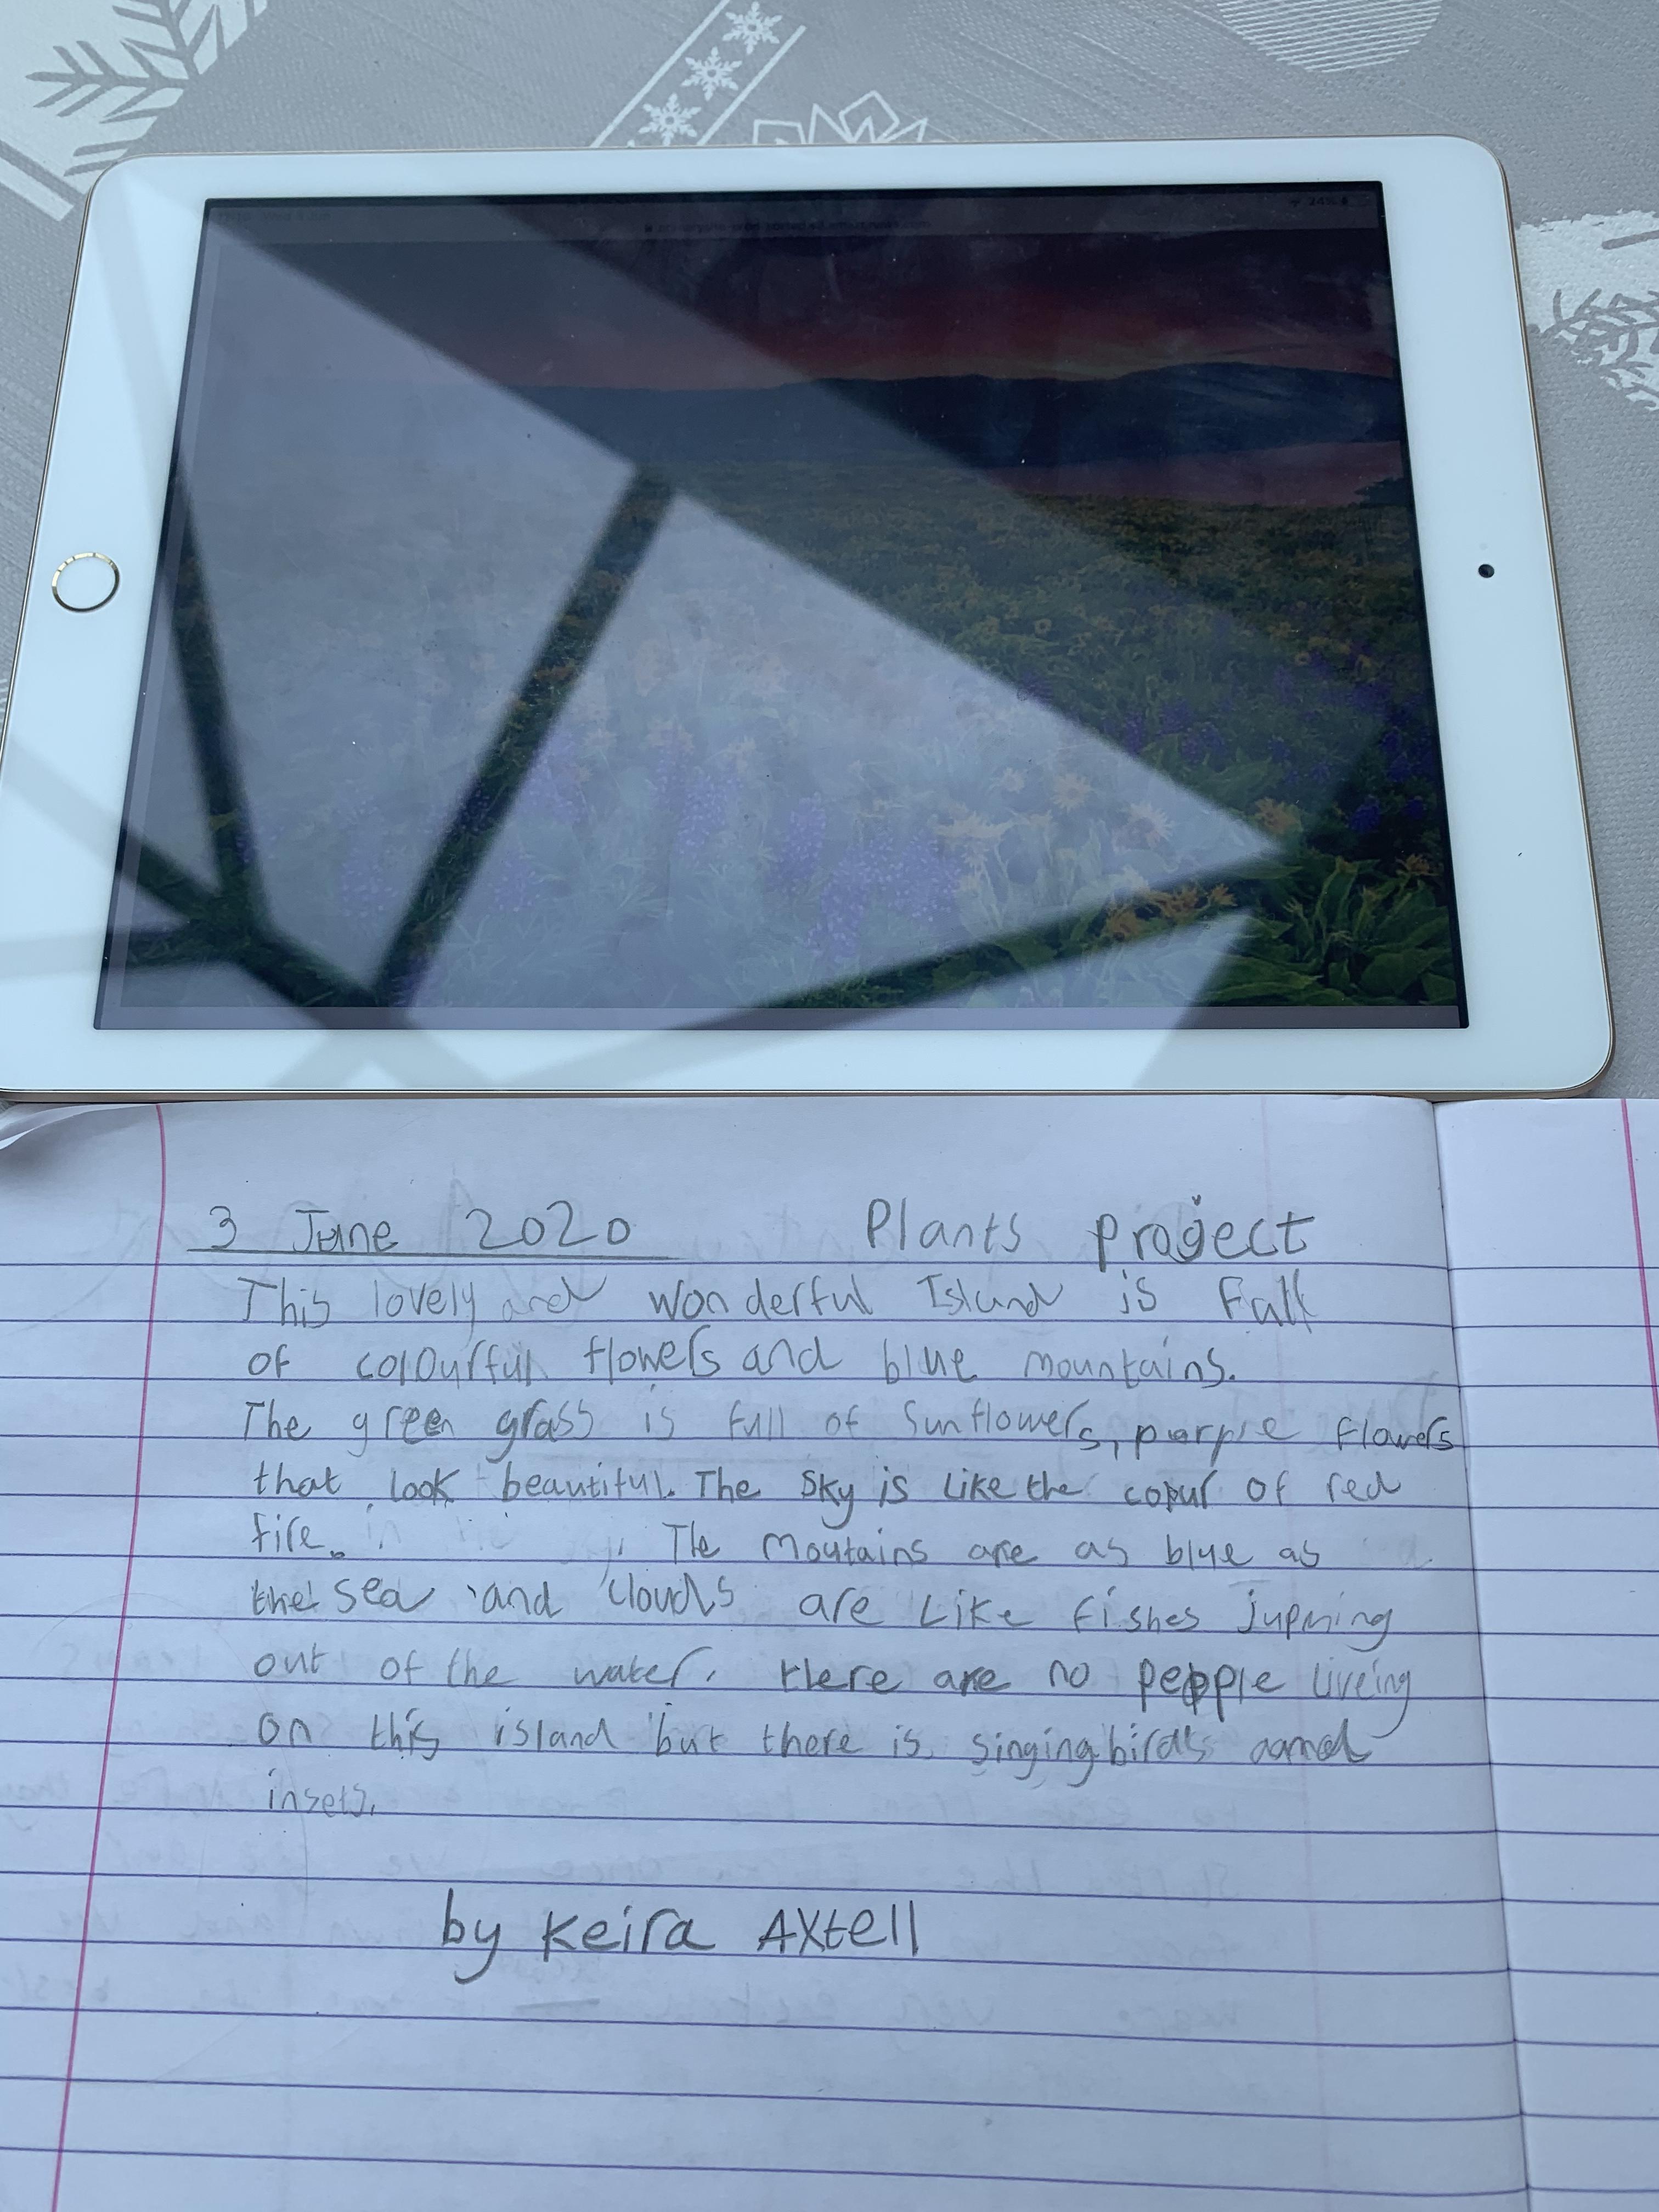 24%
3 June 2020 Plants project
This lovely and wonderful Island is Full
of colourful flowers and blue mountains.
The green grass is full of Sunflowers, purple flowers
that look beautiful. The Sky is like the colour of red
fire. The moutains are as blue as
the sea and clouds are like fishes jupming
out of the water. there are no people liveing
on this island but there is singing birds and
insets.
by Keira Axtell